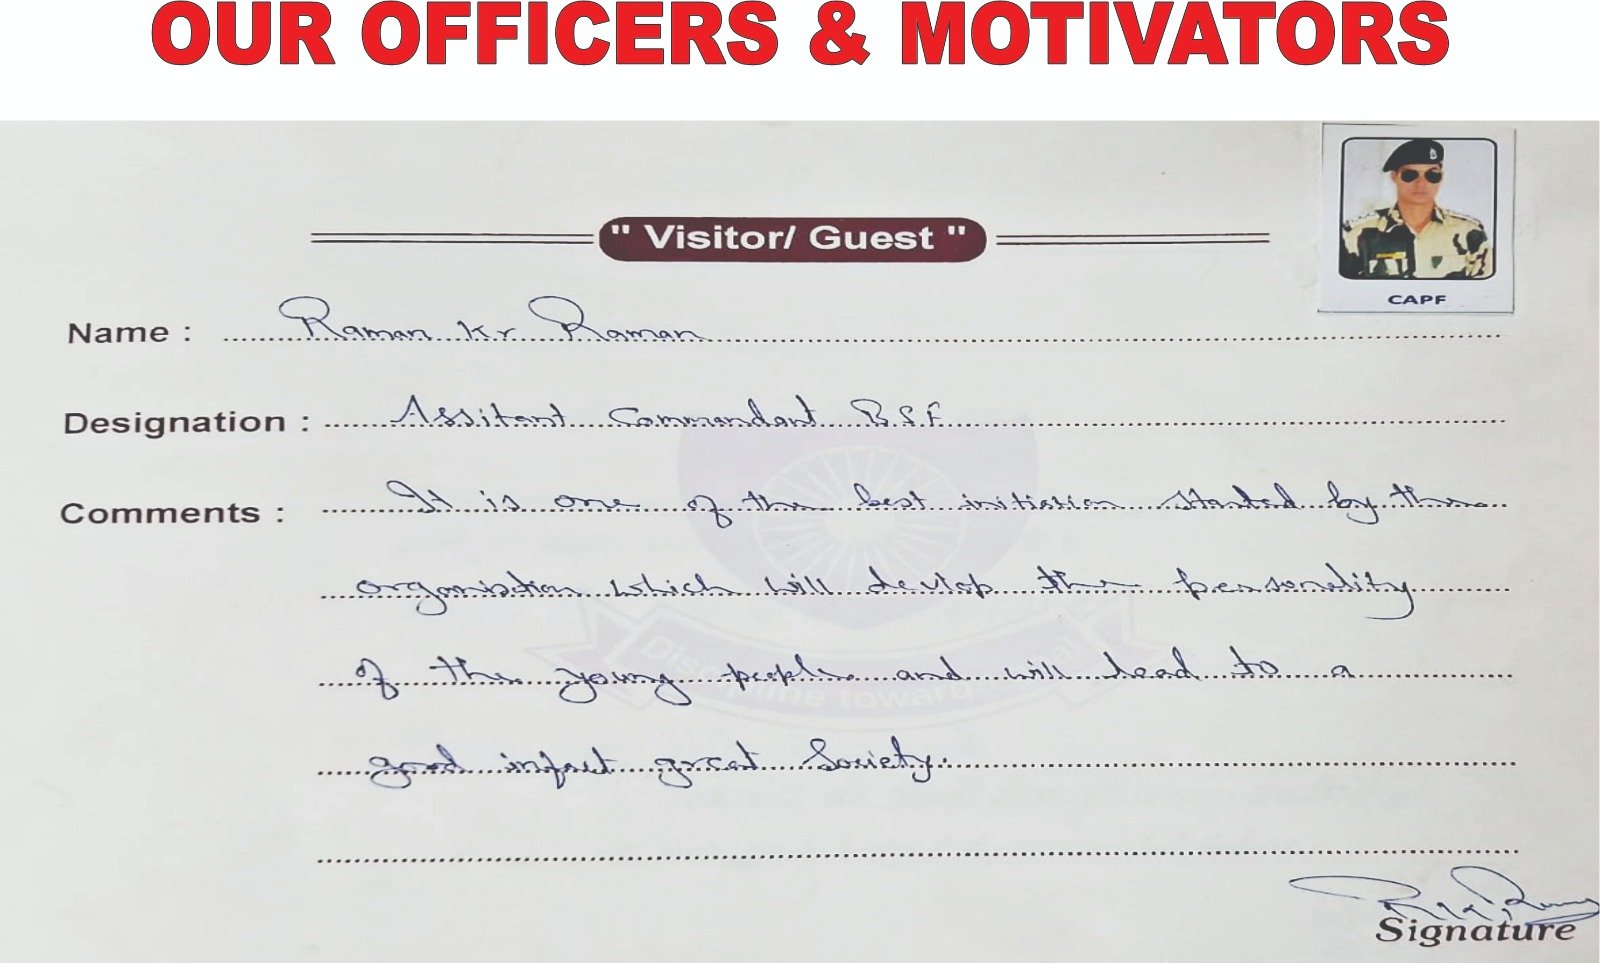 OUR OFFICERS & MOTIVATORS
CAPF
" Visitor/ Guest "
Name : Raman Kr Raman
Designation : Assitant Commandant B.S.F
Comments : It is one of the best initiation started by the
organisation which will devlop the personality
of the young people and will lead to a
good infact great Society.
R.K. Raman
Signature